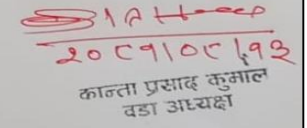 २०८१।०८।१३
कान्ता प्रसाद कुमाल
वडा अध्यक्ष